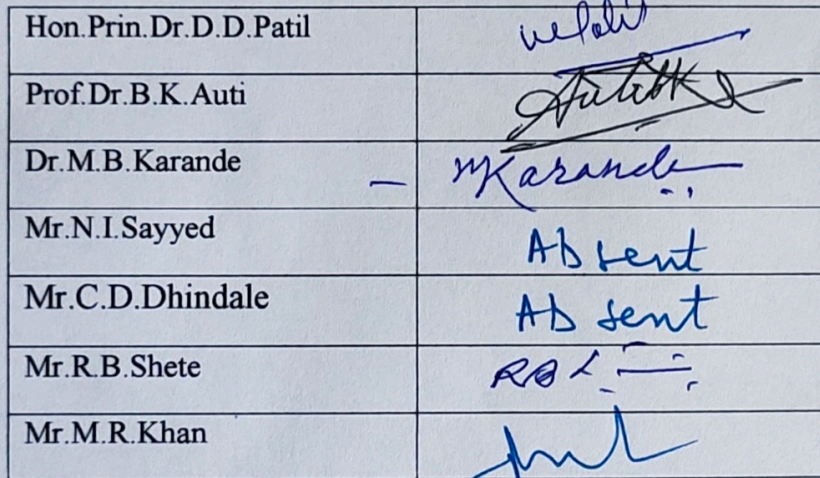 Hon.Prin.Dr.D.D.Patil
Prof.Dr.B.K.Auti AutiBK
Dr.M.B.Karande - MKarande
Mr.N.I.Sayyed Absent
Mr.C.D.Dhindale Absent
Mr.R.B.Shete
Mr.M.R.Khan